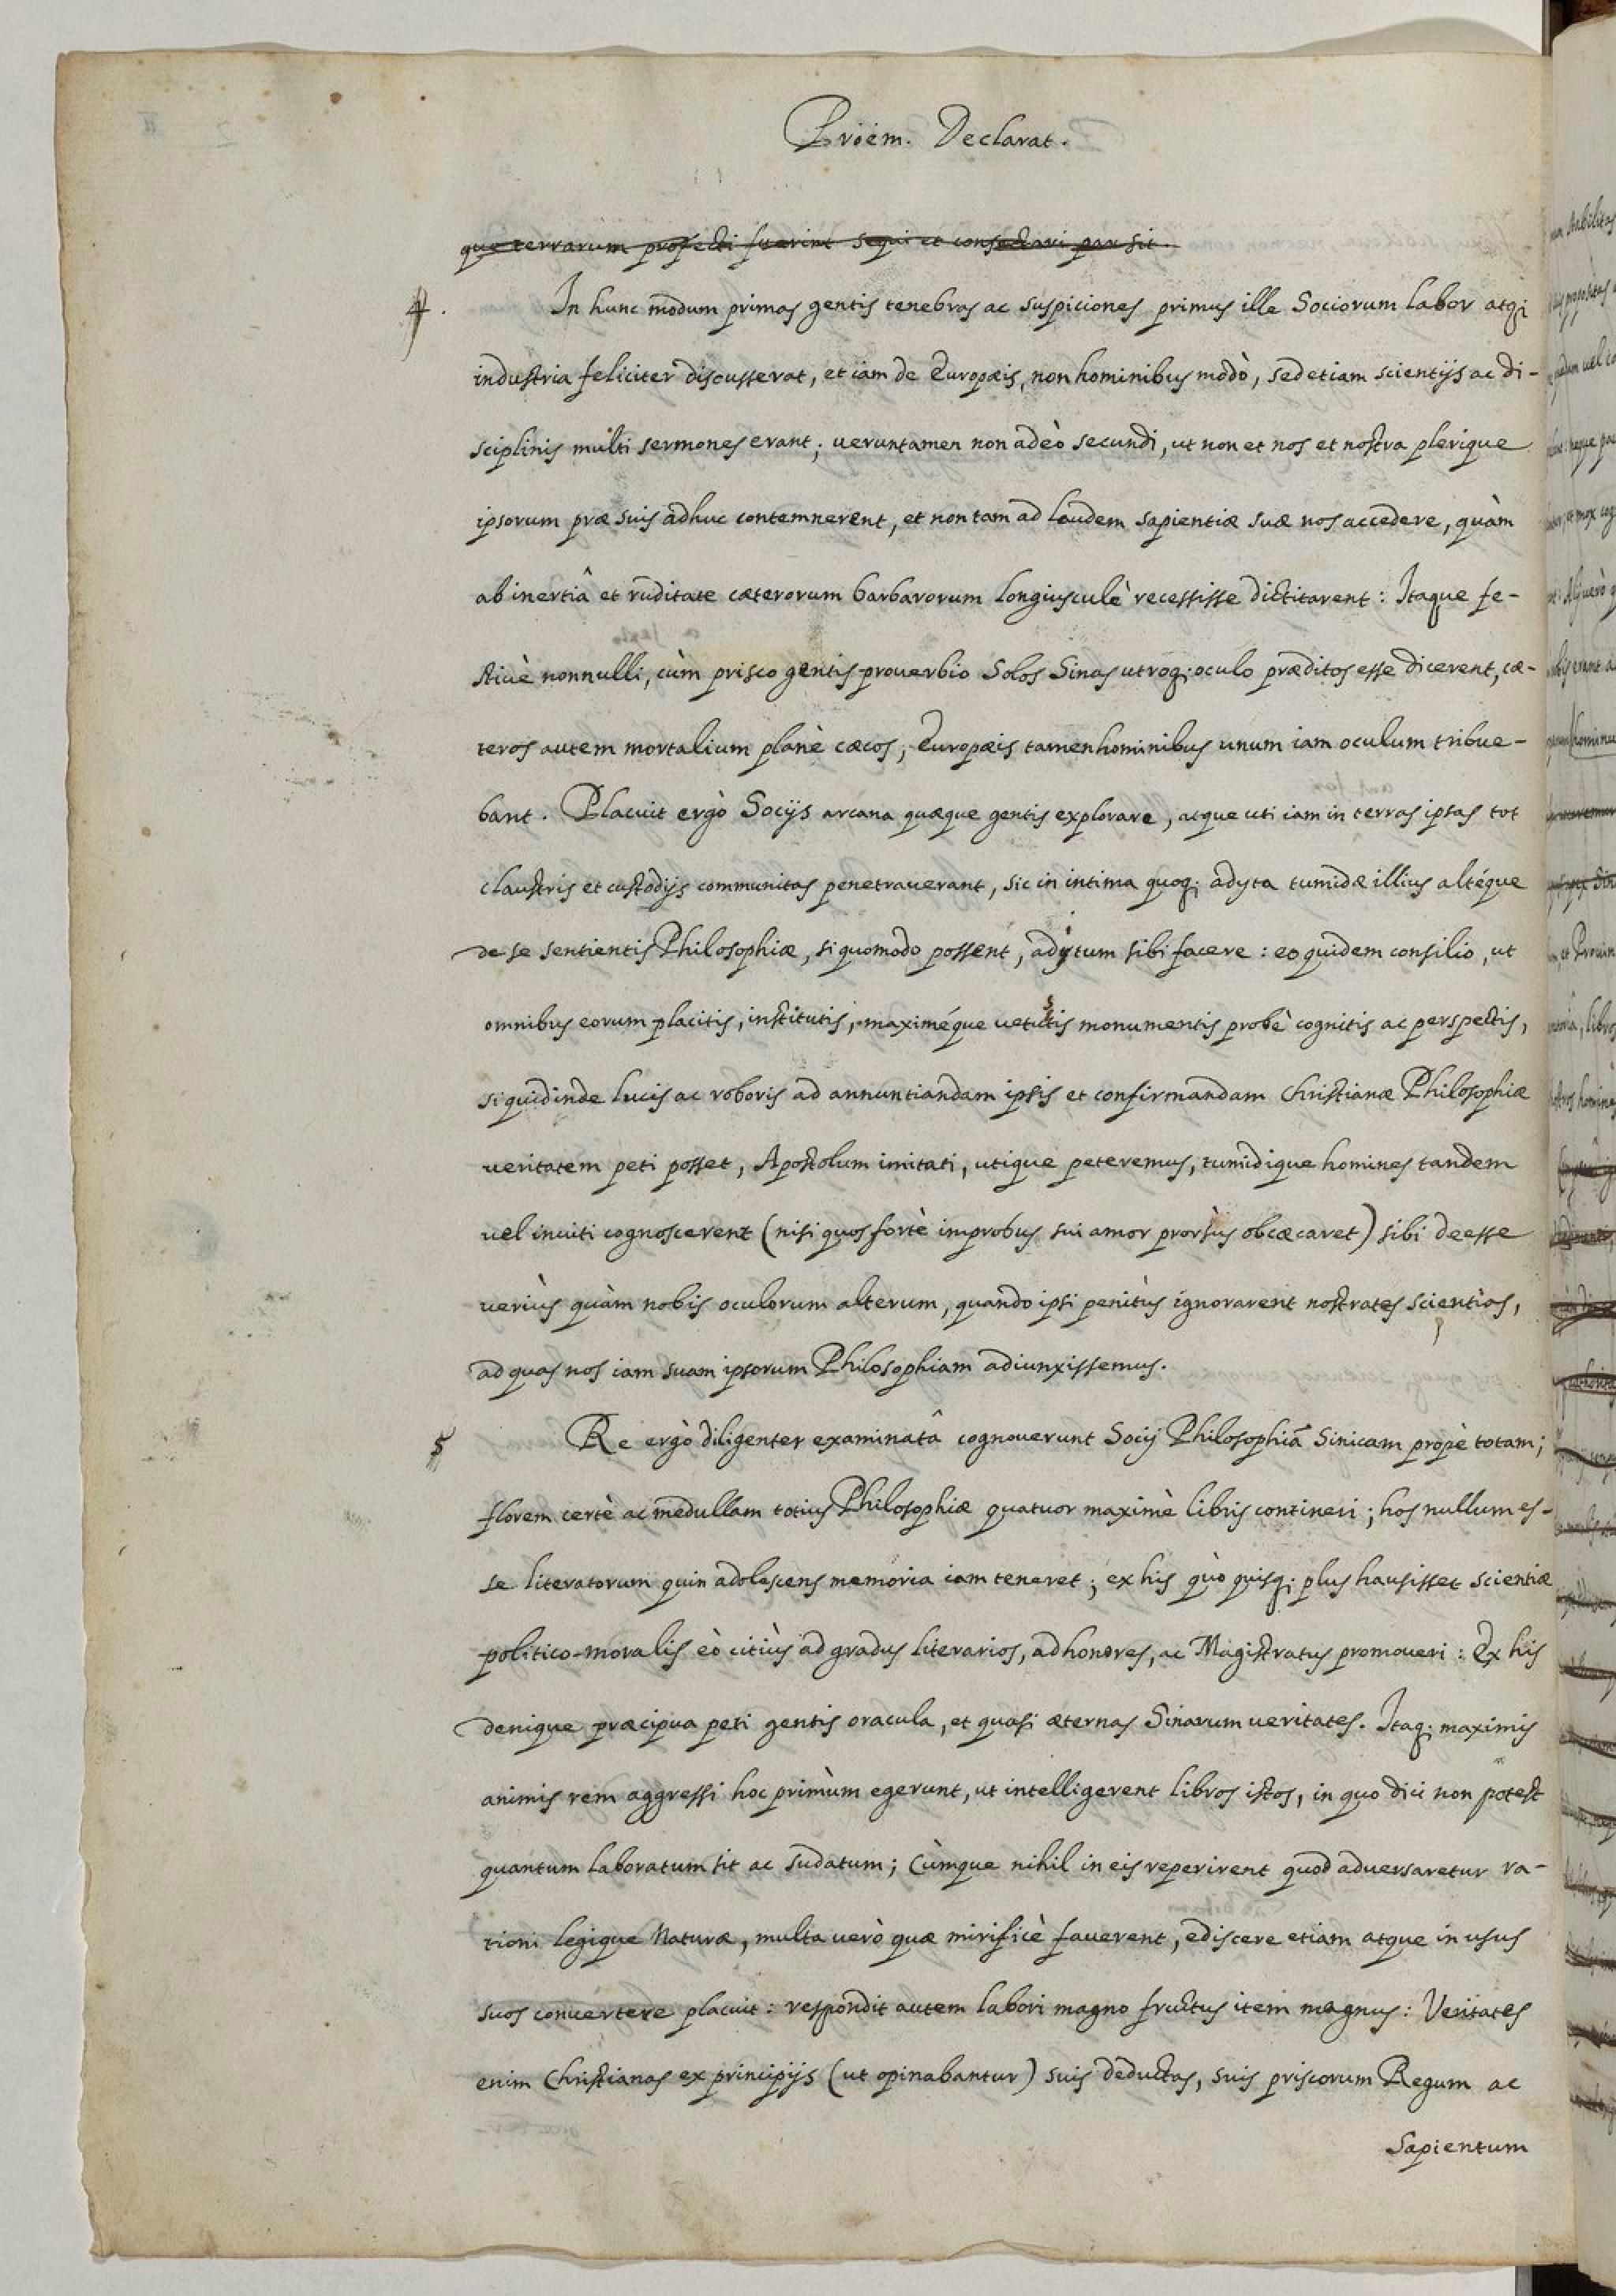 Pröem. Declarat.
quo terrarum profecti fuerint sequi et consectari par sit.
4. In hunc modum primas gentis tenebras ac suspiciones primus ille Sociorum labor atq;
industria feliciter discusserat, et iam de Europæis, non hominibus modò, sed etiam scientijs ac di-
sciplinis multi sermones erant; ueruntamen non adeò secundi, ut non et nos et nostra plerique
ipsorum præ suis adhuc contemnerent, et non tam ad laudem sapientiæ suæ nos accedere, quàm
ab inertiâ et ruditate cæterorum barbarorum longiusculè recessisse dictitarent: Itaque fe-
stiuè nonnulli, cùm prisco gentis prouerbio Solos Sinas utroq; oculo præditos esse dicerent, cæ-
teros autem mortalium planè cæcos, Europæis tamen hominibus unum iam oculum tribue-
bant. Placuit ergò Socijs arcana quæque gentis explorare, atque uti iam in terras ipsas tot
claustris et custodijs communitas penetrauerant, sic in intima quoq; adyta tumidæ illius altéque
de se sentientis Philosophiæ, si quomodo possent, aditum sibi facere: eo quidem consilio, ut
omnibus eorum placitis, institutis, maximéque uetustis monumentis probè cognitis ac perspectis,
si quid inde lucis ac roboris ad annuntiandam ipsis et confirmandam Christianæ Philosophiæ
ueritatem peti posset, Apostolum imitati, utique peteremus, tumidique homines tandem
uel inuiti cognoscerent (nisi quos fortè improbus sui amor prorsùs obcæcaret) sibi deesse
ueriùs quàm nobis oculorum alterum, quando ipsi penitùs ignorarent nostrates scientias,
ad quas nos iam suam ipsorum Philosophiam adiunxissemus.
5 Re ergò diligenter examinatâ cognouerunt Socij Philosophiã Sinicam propè totam;
florem certè ac medullam totius Philosophiæ quatuor maximè libris contineri; hos nullum es-
se literatorum quin adolescens memoria iam teneret; ex his quò quisq; plus hausisset scientiæ
politico-moralis eò citiùs ad gradus literarios, ad honores, ac Magistratus promoueri: Ex his
denique præcipua peti gentis oracula, et quasi æternas Sinarum ueritates. Itaq; maximis
animis rem aggressi hoc primùm egerunt, ut intelligerent libros istos, in quo dici non potest
quantum laboratum sit ac sudatum; Cùmque nihil in eis reperirent quod aduersaretur ra-
tioni legique Naturæ, multa uerò quæ mirificè fauerent, ediscere etiam atque in usus
suos conuertere placuit: respondit autem labori magno fructus item magnus: Veritates
enim Christianas ex principijs (ut opinabantur) suis deductas, suis priscorum Regum ac
Sapientum